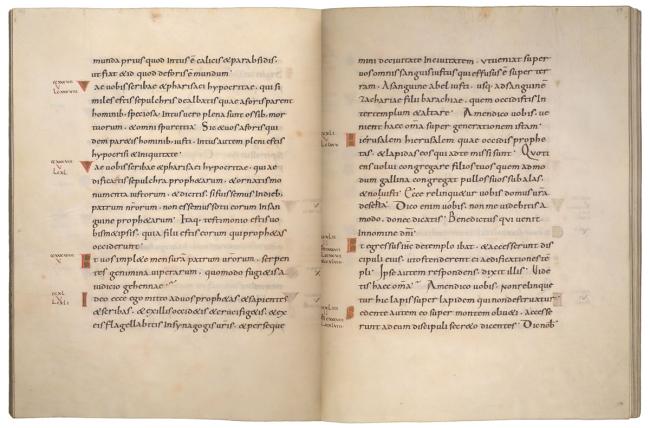 munda prius quod intus ē calicis & parabsidis.
ut fiat & id quod deforis ē mundum
Vae uobis scribae & pharisaei hypocritae. qui si
miles estis sepulchris dealbatis quae aforis parent
hominib; speciosa. Intus uero plena sunt ossib; mor
tuorum. & omni spurcitia. Sic & uos aforis qui
dem paretis hominib; iusti. intus autem pleni estis
hypocrisi & iniquitate.
Vae uobis scribae & pharisaei hypocritae. quia ae
dificatis sepulchra proph&arum. & ornatis mo
numenta iustorum. & dicitis. si fuissemus in dieb;
patrum nr̄orum. non essemus socii eorum in san
guine proph&arum. Itaq; testimonio estis uo
bism&ipsis. quia filii estis eorum qui proph&as
occiderunt.
Et uos impl&e mensurā patrum ur̄orum. serpen
tes genimina uiperarum. quomodo fugi&is a
iudicio gehennae.
Ideo ecce ego mitto ad uos proph&as & sapientes
& scribas. & ex illis occid&is & crucifig&is. & ex
eis flagellabitis in synagogis ur̄is. & perseque
mini deciuitate in ciuitatem. ut ueniat super
uos omnis sanguis iustus qui effusus ē super ter
ram. A sanguine abel iusti. usq; ad sanguinē
zachariae filii barachiae. quem occidistis in
ter templum & altare. Amen dico uobis. ue
nient haec om̄a super generationem istam.
Hierusalem hierusalem quae occidis proph&
tas. & lapidas eos qui ad te missi sunt. Quoti
ens uolui congregare filios tuos. quem admo
dum gallina congregat pullos suos sub alas.
& noluisti. Ecce relinqu&ur uobis domus ur̄a
deserta. Dico enim uobis. non me uidebitis a
modo. donec dicatis. Benedictus qui uenit
In nomine dn̄i.
Et egressus ihc̄ de templo ibat. & accesserunt dis
cipuli eius. ut ostenderent ei aedificationes tē
pli. Ipse autem respondens dixit illis. Vide
tis haec om̄a. Amen dico uobis. non relinque
tur hic lapis super lapidem qui non destruatur.
Sedente autem eo super montem oliu&i. accesse
runt ad eum discipuli secr&o dicentes. Dic nob̄